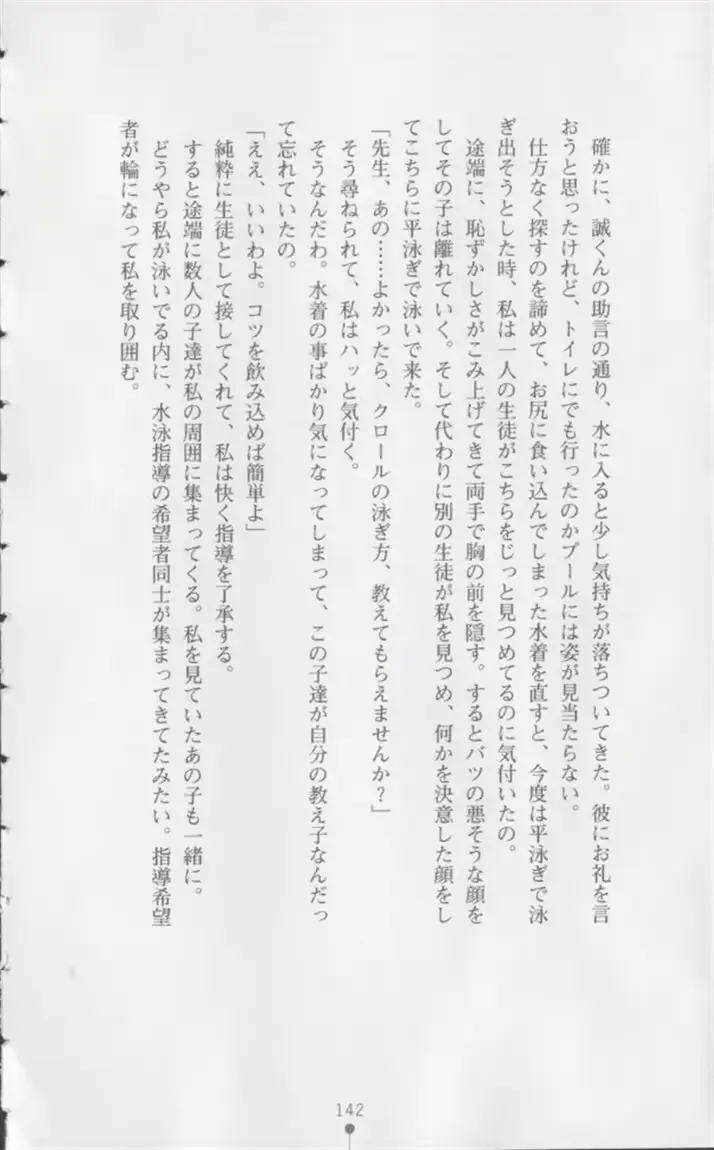 確かに、誠くんの助言の通り、水に入ると少し気持ちが落ちついてきた。彼にお礼を言
おうと思ったけれど、トイレにでも行ったのかプールには姿が見当たらない。
仕方なく探すのを諦めて、お尻に食い込んでしまった水着を直すと、今度は平泳ぎで泳
ぎ出そうとした時、私は一人の生徒がこちらをじっと見つめてるのに気付いたの。
途端に、恥ずかしさがこみ上げてきて両手で胸の前を隠す。するとバツの悪そうな顔を
してその子は離れていく。そして代わりに別の生徒が私を見つめ、何かを決意した顔をし
てこちらに平泳ぎで泳いで来た。
「先生、あの……よかったら、クロールの泳ぎ方、教えてもらえませんか？」
そう尋ねられて、私はハッと気付く。
そうなんだわ。水着の事ばかり気になってしまって、この子達が自分の教え子なんだっ
て忘れていたの。
「ええ、いいわよ。コツを飲み込めば簡単よ」
純粋に生徒として接してくれて、私は快く指導を了承する。
すると途端に数人の子達が私の周囲に集まってくる。私を見ていたあの子も一緒に。
どうやら私が泳いでる内に、水泳指導の希望者同士が集まってきてたみたい。指導希望
者が輪になって私を取り囲む。
142